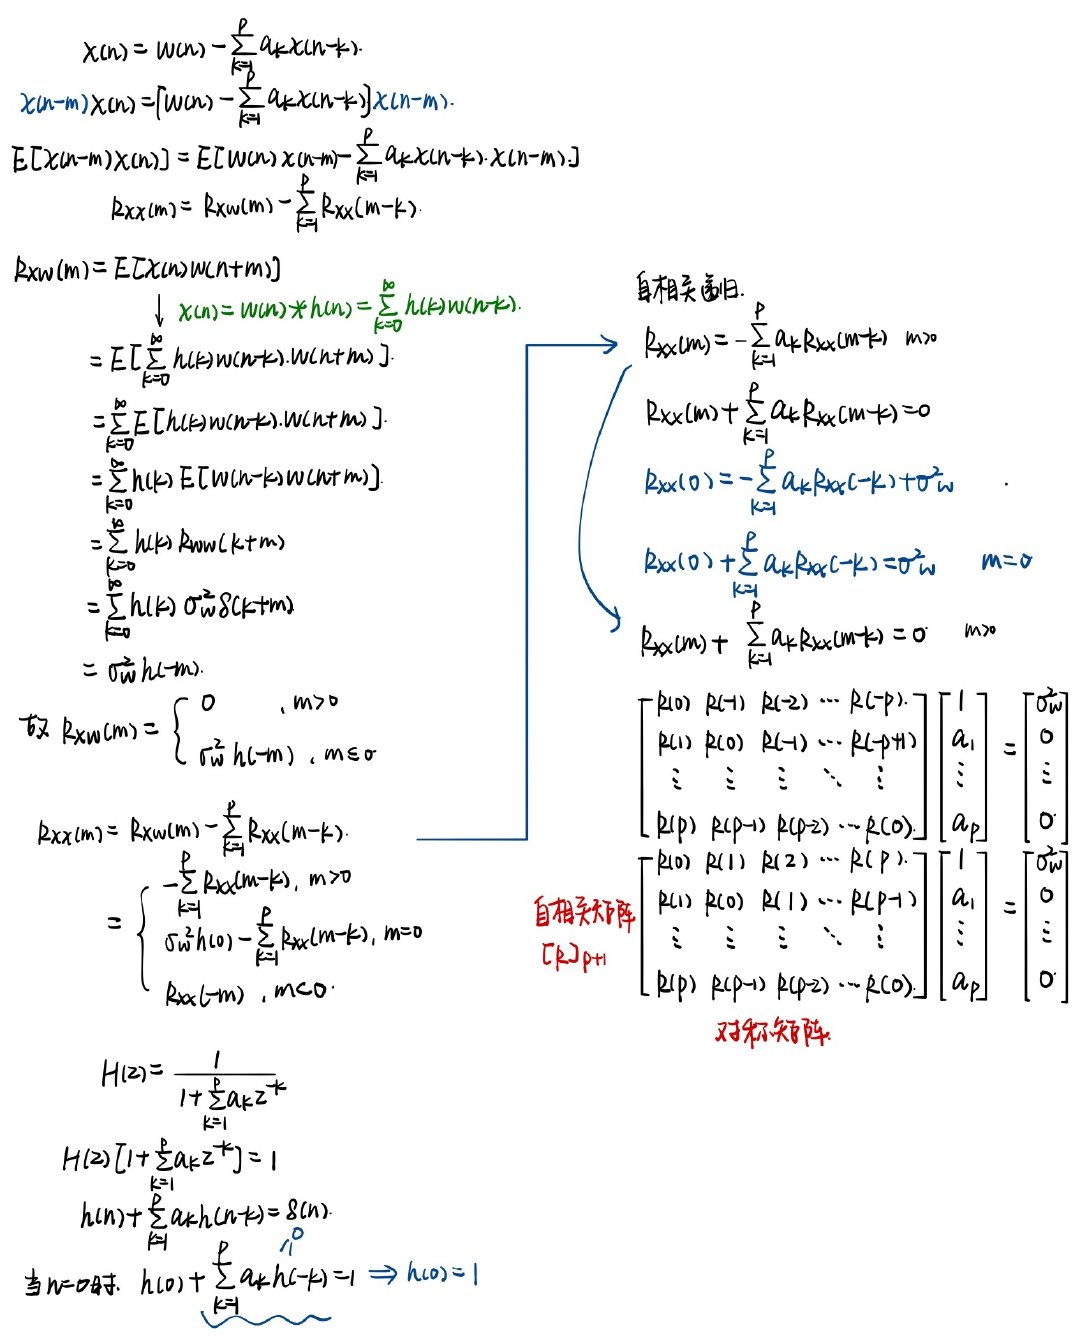 x(n) = w(n) - ∑_{k=1}^{p} a_k x(n-k).
x(n-m) x(n) = [w(n) - ∑_{k=1}^{p} a_k x(n-k)] x(n-m).
E[x(n-m)x(n)] = E[w(n) x(n-m) - ∑_{k=1}^{p} a_k x(n-k)·x(n-m).]
R_{xx}(m) = R_{xw}(m) - ∑_{k=1}^{p} R_{xx}(m-k).
R_{xw}(m) = E[x(n)w(n+m)]
↓ x(n) = w(n) * h(n) = ∑_{k=0}^{∞} h(k)w(n-k).
= E[∑_{k=0}^{∞} h(k)w(n-k).w(n+m)].
= ∑_{k=0}^{∞} E[h(k)w(n-k).w(n+m)].
= ∑_{k=0}^{∞} h(k) E[w(n-k)w(n+m)].
= ∑_{k=0}^{∞} h(k) R_{ww}(k+m)
= ∑_{k=0}^{∞} h(k) σ_w^2 δ(k+m)
= σ_w^2 h(-m).
故 R_{xw}(m) = { 0 , m>0
σ_w^2 h(-m) , m≤0
R_{xx}(m) = R_{xw}(m) - ∑_{k=1}^{p} R_{xx}(m-k).
= { -∑_{k=1}^{p} R_{xx}(m-k), m>0
σ_w^2 h(0) - ∑_{k=1}^{p} R_{xx}(m-k), m=0
R_{xx}(-m) , m<0.
H(z) = 1 / (1 + ∑_{k=1}^{p} a_k z^{-k})
H(z)[1 + ∑_{k=1}^{p} a_k z^{-k}] = 1
h(n) + ∑_{k=1}^{p} a_k h(n-k) = δ(n).
0
当n=0时. h(0) + ∑_{k=1}^{p} a_k h(-k) = 1 ⇒ h(0) = 1
自相关函归.
R_{xx}(m) = -∑_{k=1}^{p} a_k R_{xx}(m-k) m>0
R_{xx}(m) + ∑_{k=1}^{p} a_k R_{xx}(m-k) = 0
R_{xx}(0) = -∑_{k=1}^{p} a_k R_{xx}(-k) + σ_w^2
R_{xx}(0) + ∑_{k=1}^{p} a_k R_{xx}(-k) = σ_w^2 m=0
R_{xx}(m) + ∑_{k=1}^{p} a_k R_{xx}(m-k) = 0 m>0
[R(0) R(-1) R(-2) ⋯ R(-p).] [1] [σ_w^2]
[R(1) R(0) R(-1) ⋯ R(-p+1)] [a_1] = [0]
[⋮ ⋮ ⋮ ⋱ ⋮] [⋮] [⋮]
[R(p) R(p-1) R(p-2) ⋯ R(0).] [a_p] [0]
[R(0) R(1) R(2) ⋯ R(p).] [1] [σ_w^2]
自相关矩阵 [R(1) R(0) R(1) ⋯ R(p-1)] [a_1] = [0]
[R]_{p+1} [⋮ ⋮ ⋮ ⋱ ⋮] [⋮] [⋮]
[R(p) R(p-1) R(p-2) ⋯ R(0).] [a_p] [0]
对称矩阵.